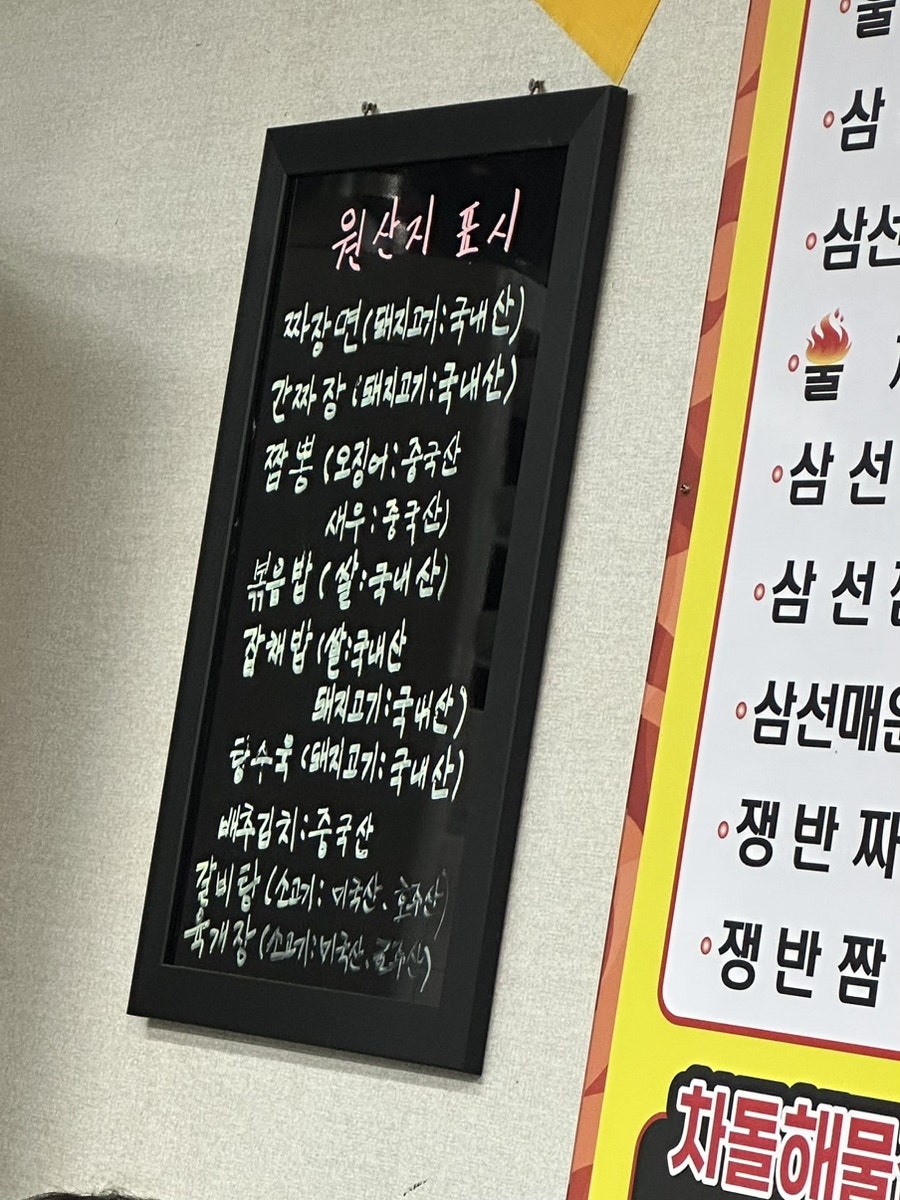 원산지 표시
짜장면(돼지고기:국내산)
간짜장(돼지고기:국내산)
짬뽕(오징어:중국산
새우:중국산)
볶음밥(쌀:국내산)
잡채밥(쌀:국내산
돼지고기:국내산)
탕수육(돼지고기:국내산)
배추김치:중국산
갈비탕(소고기: 미국산. 호주산)
육개장(소고기:미국산. 호주산)
삼
삼선
불
삼 선
삼 선
삼선매운
쟁 반 짜
쟁 반 짬
차돌해물